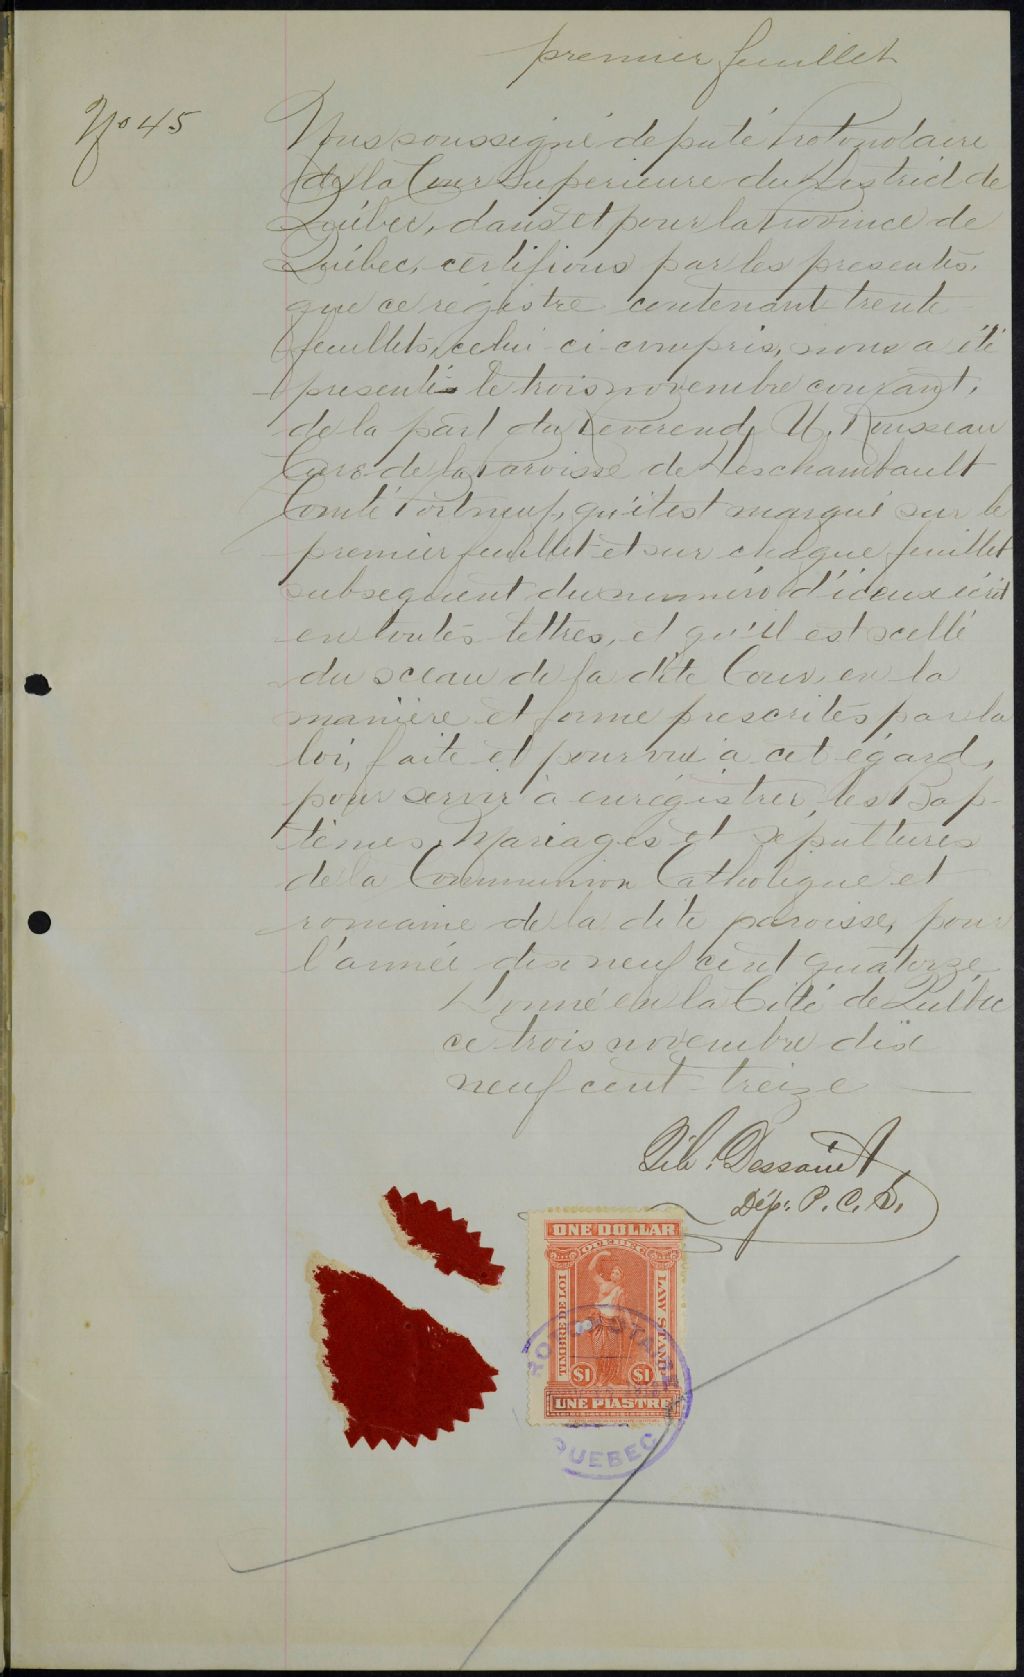 premier feuillet
No 45
Nous soussigné député Protonotaire
de la Cour Supérieure du District de
Québec, dans et pour la Province de
Québec, certifions par les presentes.
que ce régistre contenant trente
feuillets, celui-ci compris, nous a été
presenté le trois novembre courant.
de la part du Révérend U. Rousseau
Curé de la Paroisse de Deschambault
Comté Portneuf, qu'il est marqué sur le
premier feuillet et sur chaque feuillet
subsequent du numéro d'iceux écrit
en toutes lettres, et qu'il est scellé
du sceau de la dite Cour, en la
manière et forme prescrites par la
loi, faite et pourvue à cet égard,
pour servir à enrégistrer, les Bap-
têmes, Mariages et sépultures
de la Communion Catholique et
romaine de la dite paroisse, pour
l'année dix neuf cent quatorze
Donné en la Cité de Québec
ce trois novembre dix
neuf cent treize
Dép. P. C. S.
ONE DOLLAR
QUEBEC
TIMBRE DE LOI
LAW STAMP
$1 $1
UNE PIASTRE
QUEBEC